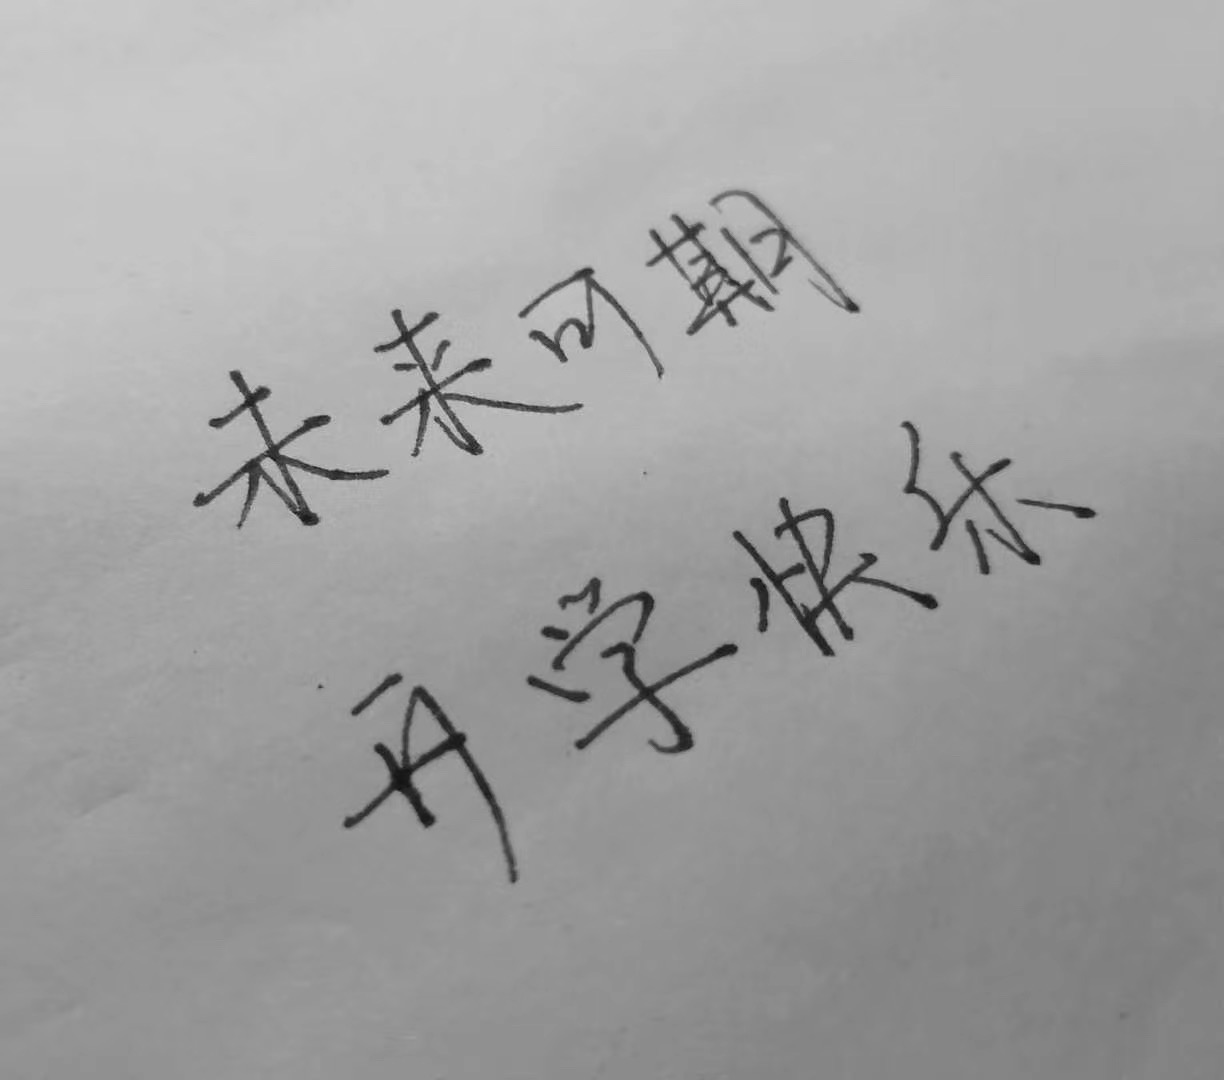 未来可期
开学快乐